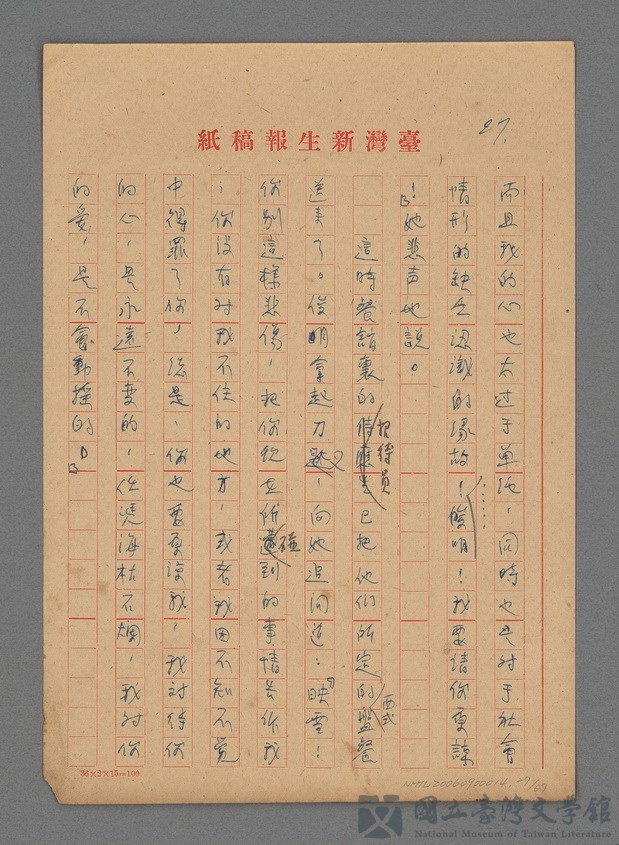 27.
紙稿報生新灣臺
而且我的心也太过于单纯，同時也是对于社会
情形的缺乏认識的缘故！……俊明！我要请你原諒
！」她悲声地説。
這時餐館裏的招待員已把他们所定的西式盤餐
送来了。俊明拿起刀叉，向她追问道：「映雪！
你别這様悲傷，把你現在所碰到的事情告诉我
，你没有对我不住的地方，或者我因不知不觉
中得罪了你，总是，你也要原諒我，我对待你
的心，是永遠不变的，任凭海枯石烂，我对你
的爱，是不會動摇的。」
36×2×15=100
NMTL20060900014 27/07
國立臺灣文學館
National Museum of Taiwan Literature